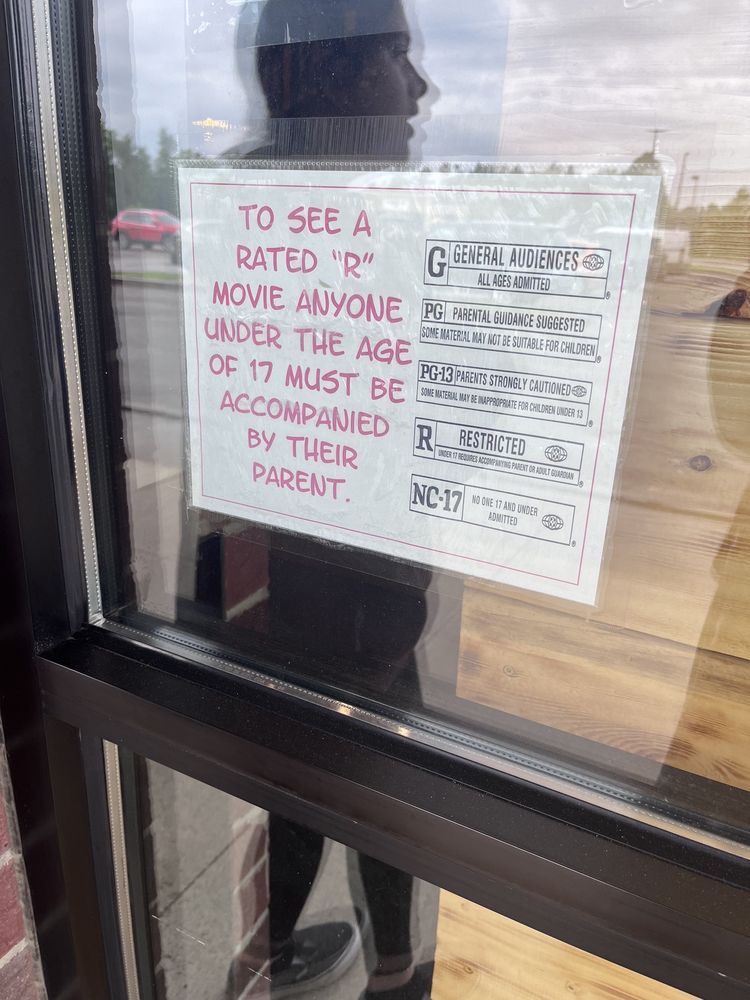 TO SEE A
RATED "R"
MOVIE ANYONE
UNDER THE AGE
OF 17 MUST BE
ACCOMPANIED
BY THEIR
PARENT.
G GENERAL AUDIENCES
ALL AGES ADMITTED
®
PG PARENTAL GUIDANCE SUGGESTED
SOME MATERIAL MAY NOT BE SUITABLE FOR CHILDREN
®
PG-13 PARENTS STRONGLY CAUTIONED
SOME MATERIAL MAY BE INAPPROPRIATE FOR CHILDREN UNDER 13
®
R RESTRICTED
UNDER 17 REQUIRES ACCOMPANYING PARENT OR ADULT GUARDIAN
®
NC-17 NO ONE 17 AND UNDER
ADMITTED
®